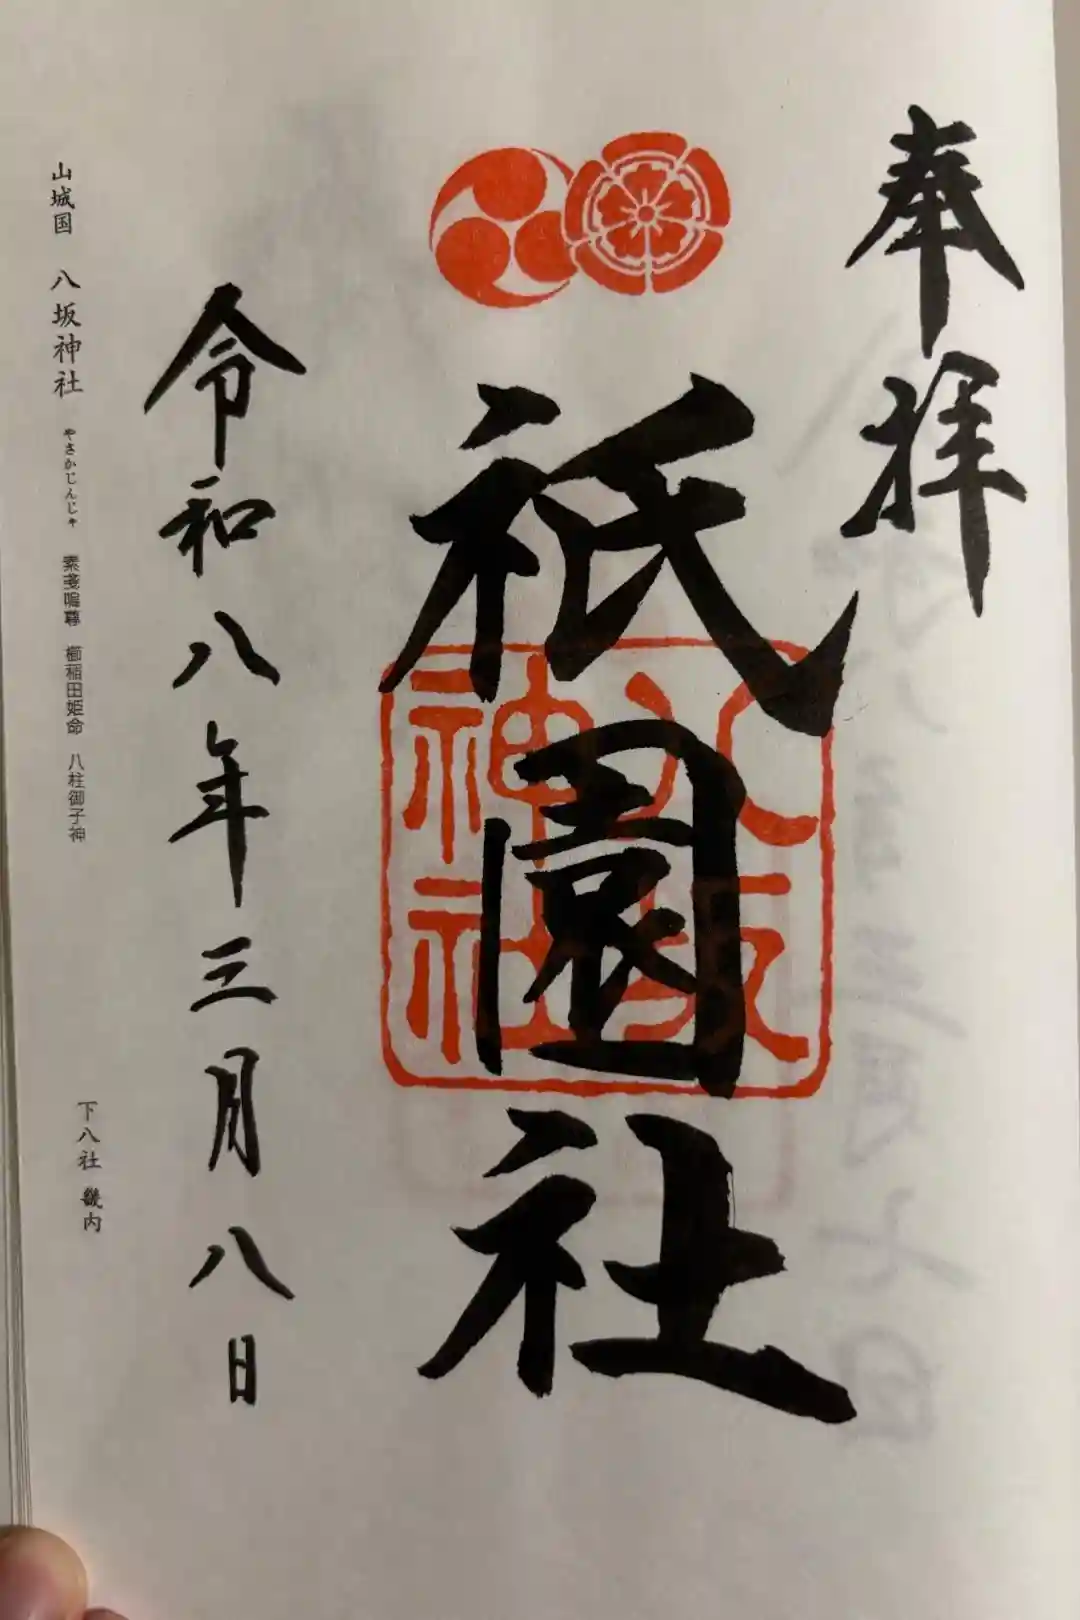 奉拝
祇園社
八坂
神社
令和八年三月八日
山城国 八坂神社 やさかじんじゃ 素戔嗚尊 櫛稲田姫命 八柱御子神
下八社 畿内